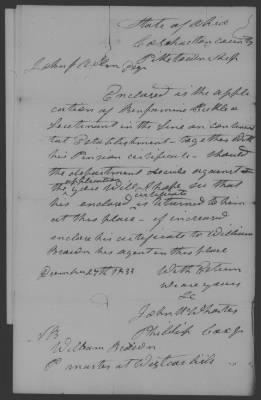 State of Ohio
Coshocton county
Pike township
John
Enclosed is the appli
cation of Benjamine a
Lieutenant in the line on continen
tal Establishment - together with
his Pension certificate - should
the department decide against
application
the you will I hope see that
certificate
his enclosed is returned to him
at this place - if increased
enclose his certificate to William
Brown his agent in this place
December 24th 1833 With Esteem
we are yours
&c
John W
Phillip
NB
William Brown
P master at West